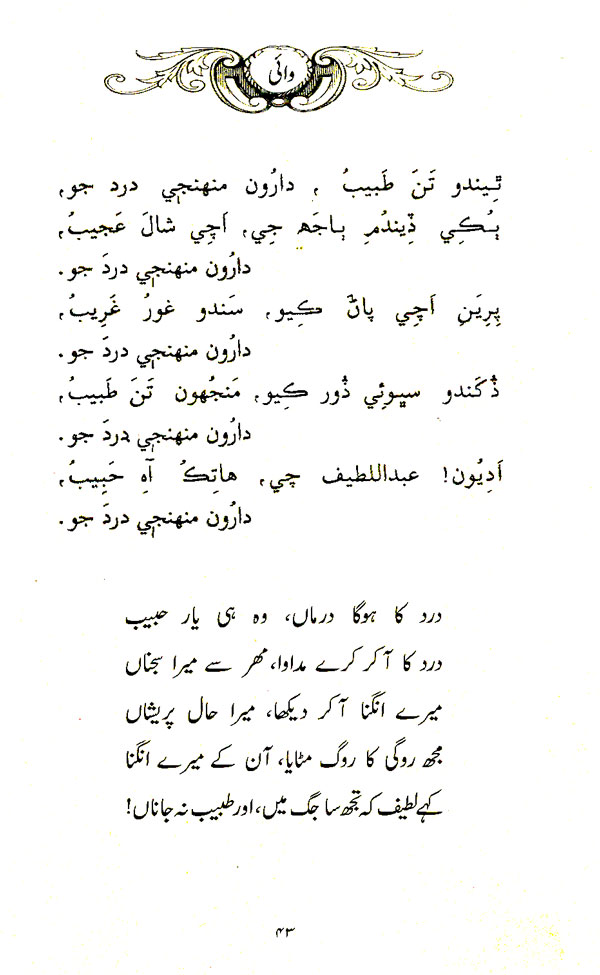 وائی
ٿِيندو تَنَ طَبِيبُ ، دارُون منهنجي درد جو،
ٻُڪِي ڏِيندُمِ ٻاجَھ جِي، اَچِي شالَ عَجِيبُ،
دارُون منهنجي دردَ جو.
پِرِيَنِ اَچِي پاڻَ ڪِيو، سَندو غورُ غَرِيبُ،
دارُون منهنجي دردَ جو.
ڏُکَندو سڀوئِي ڏُور ڪِيو، مَنجُهون تَنَ طَبِيبُ،
دارُون منهنجي دردَ جو.
اَدِيُون! عبداللطيف چي، هاتِڪُ آهِ حَبِيبُ،
دارُون منهنجي دردَ جو.
درد کا ہوگا درماں، وہ ہی یار حبیب
درد کا آ کر کرے مداوا، مہر سے میرا سجناں
میرے انگنا آ کر دیکھا، میرا حال پریشاں
مجھ روگی کا روگ مٹایا، آن کے میرے انگنا
کہے لطیف کہ تجھ سا جگ میں، اور طبیب نہ جاناں!
۴۳